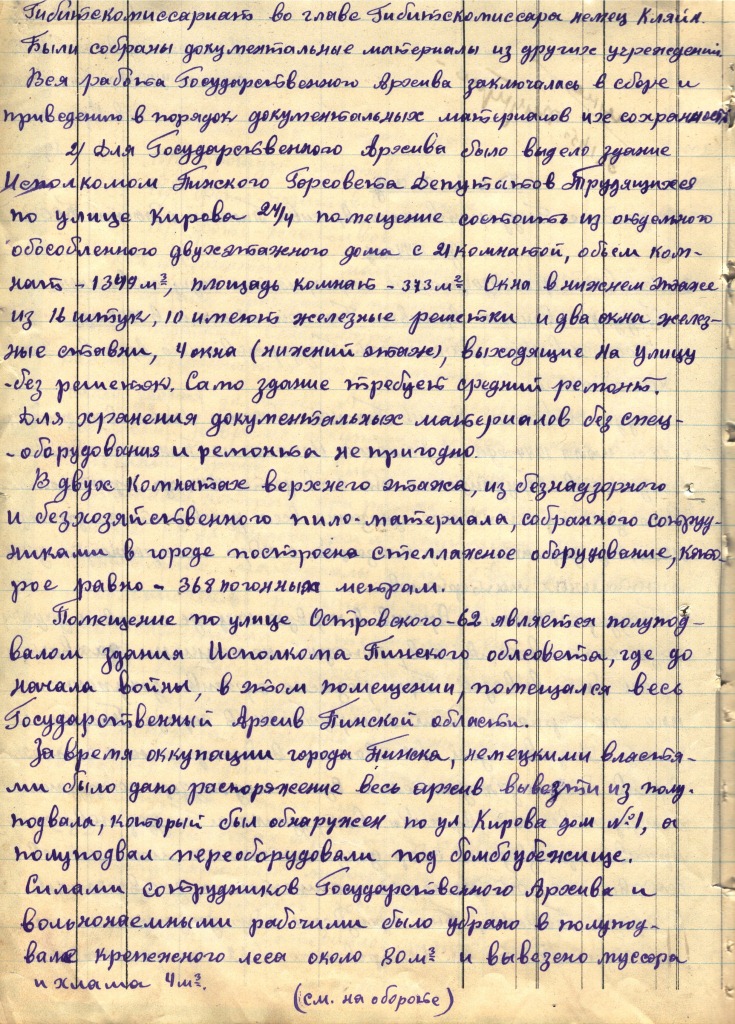 Гибитскомиссариат во главе Гибитскомиссара немец Кляйн.
Были собраны документальные материалы из других учреждений
Вся работа Государственного Архива заключалась в сборе и
приведению в порядок документальных материалов их сохранности
2/ Для Государственного Архива было выдело здание
Исполкомом Пинского Горсовета Депутытов Трудящихся
по улице Кирова 24/4 помещение состоить из отдельного
обособленного двухэтажного дома с 21 комнатой, объем ком-
нат - 1349 м³, площадь комнат - 373 м². Окна в нижнем этаже
из 16 штук, 10 имеют железные решетки и два окна желез-
ные ставни, 4 окна (нижний этаж), выходящие на улицу
-без решеток. Само здание требует средний ремонт.
Для хранения документальных материалов без спец-
-оборудования и ремонта не пригодно.
В двух комнатах верхнего этажа, из безнадзорного
и безхозяйственного пило-материала, собранного сотруд-
никами в городе построена стеллажное оборудование, кото-
рое равно - 368 погонных метрам.
Помещение по улице Островского-62 является полупод-
валом здания Исполкома Пинского облсовета, где до
начала войны, в этом помещении, помещался весь
Государственный Архив Пинской области.
За время оккупации города Пинска, немецкими властя-
ми было дано распоряжение весь архив вывезти из полу-
подвала, который был обнаружен по ул. Кирова дом №1, а
полуподвал переоборудовали под бомбоубежище.
Силами сотрудников Государственного Архива и
вольнонаемными рабочими было убрано в полупод-
вале крепежного леса около 80 м³ и вывезено муссора
и хлама 4 м³.
(см. на обороте)